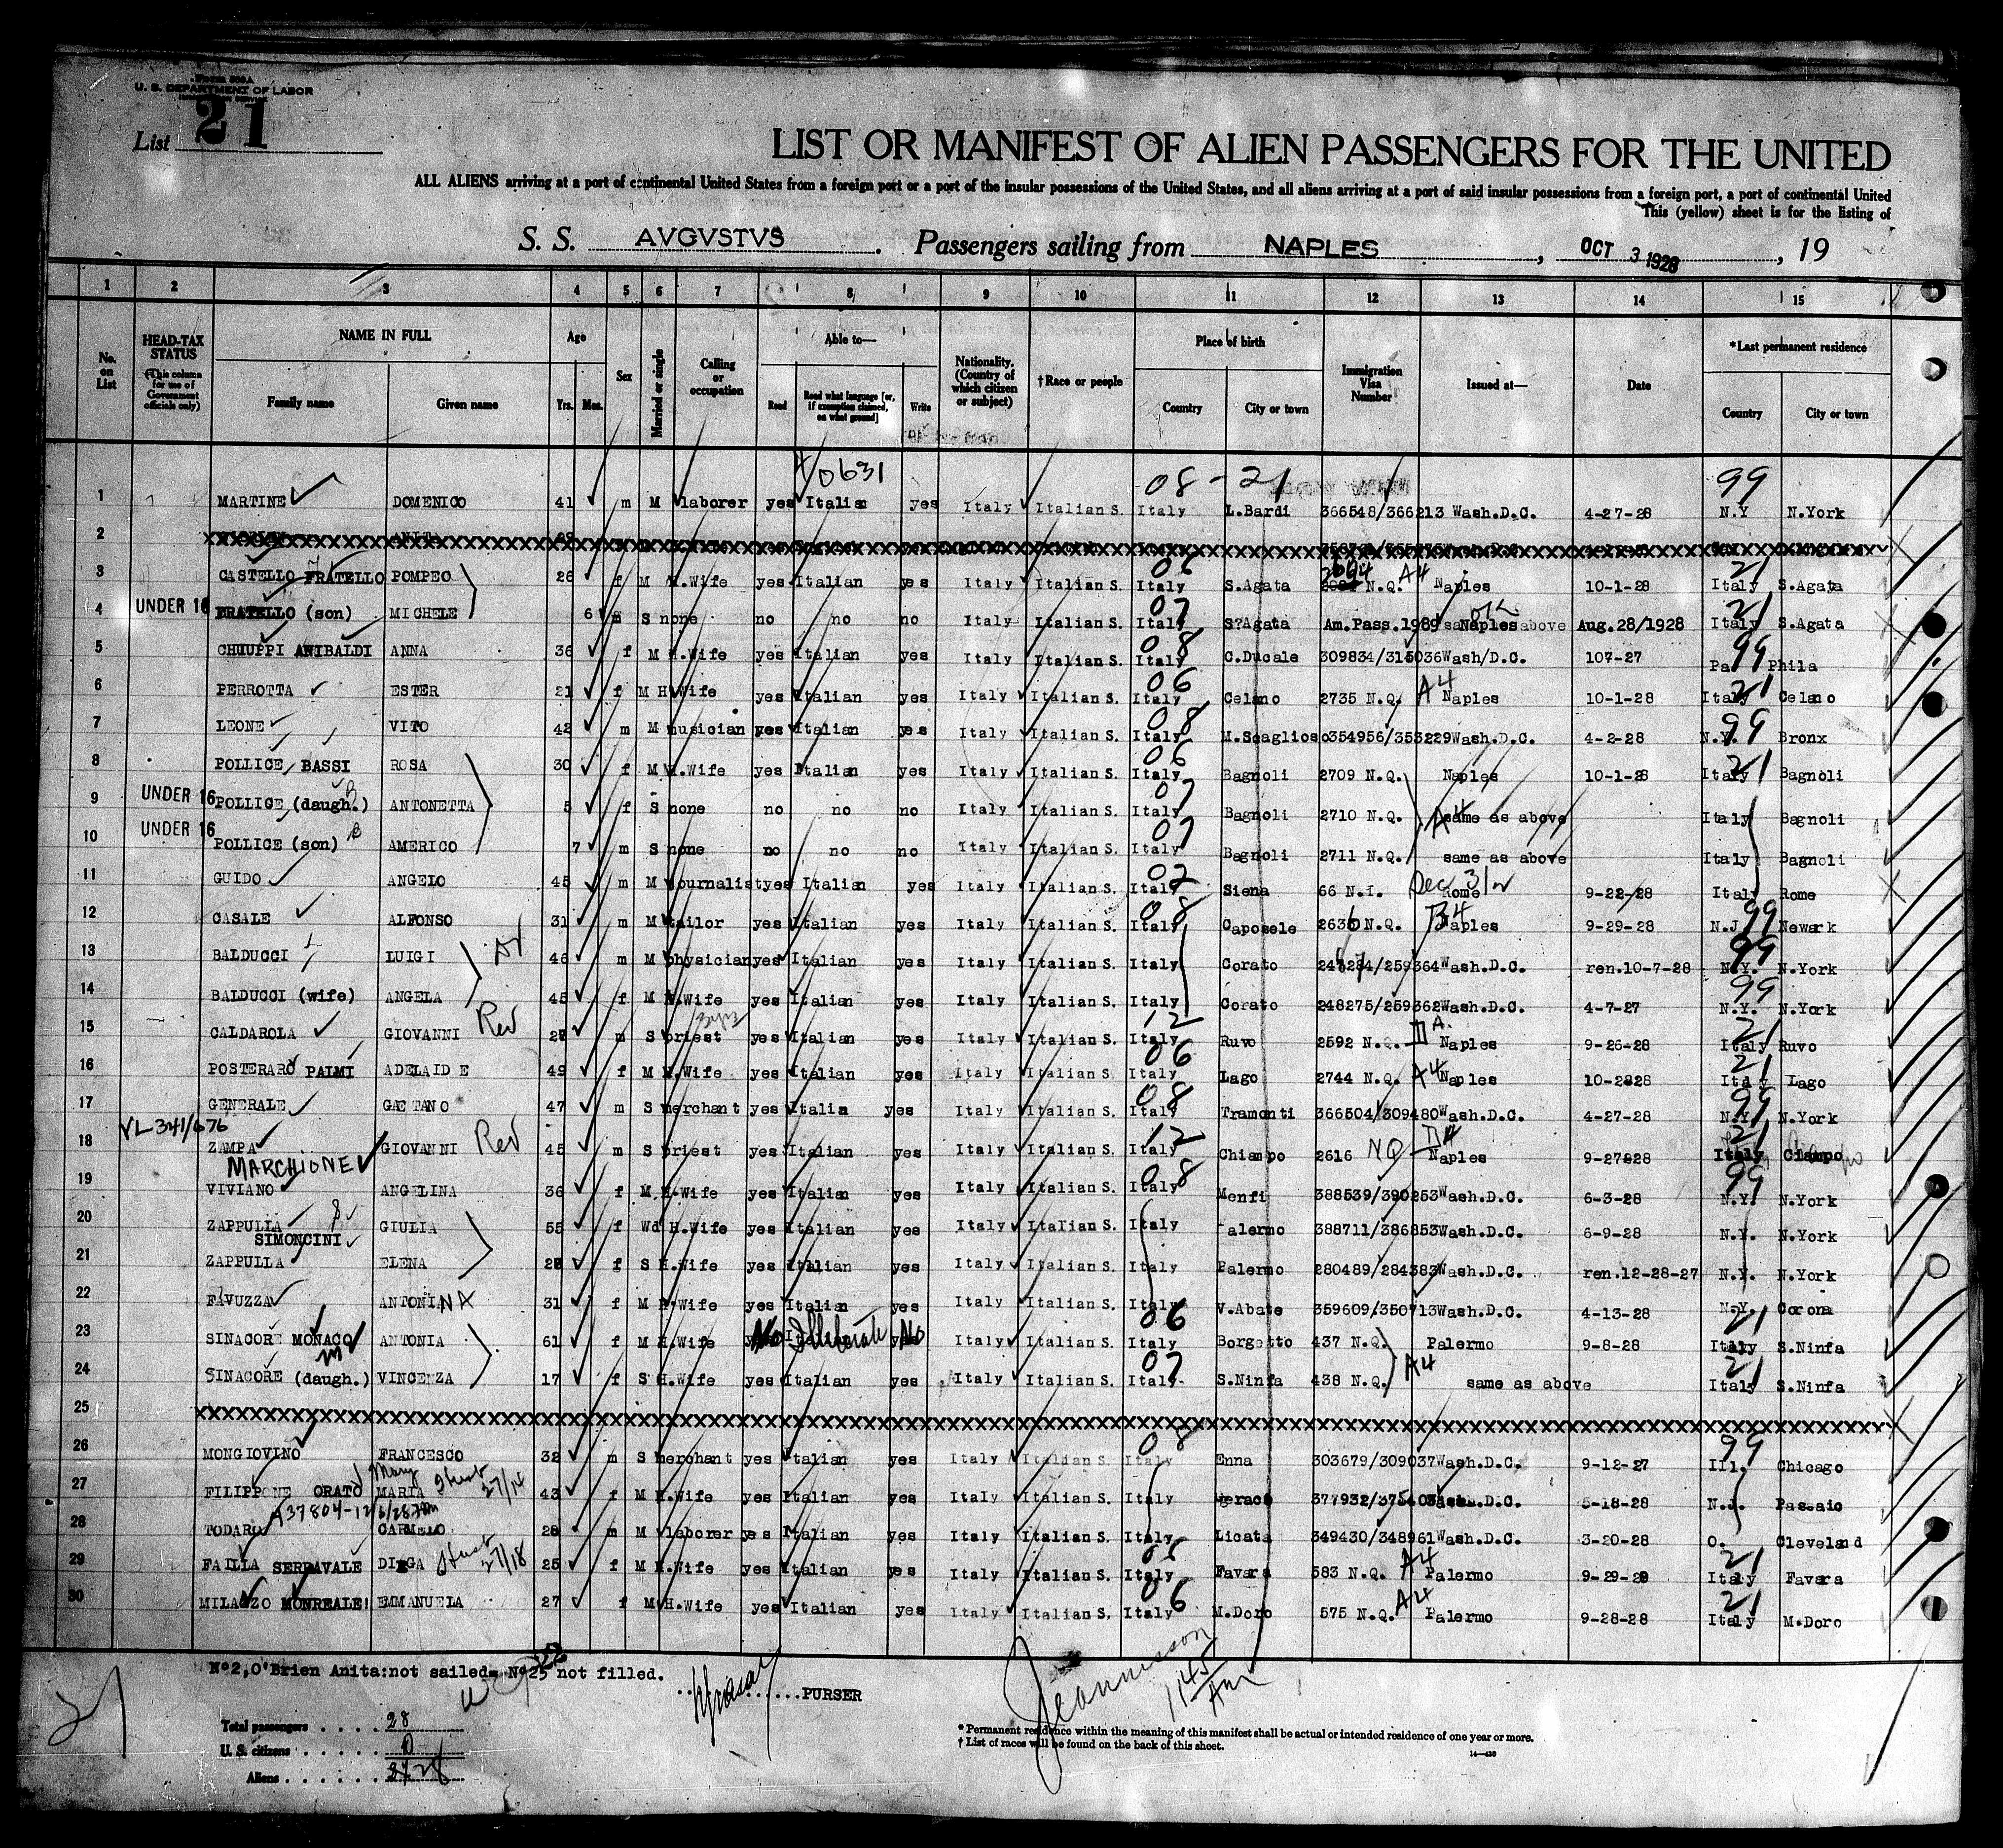 Form 500A
U. S. DEPARTMENT OF LABOR
List 21
LIST OR MANIFEST OF ALIEN PASSENGERS FOR THE UNITED
ALL ALIENS arriving at a port of continental United States from a foreign port or a port of the insular possessions of the United States, and all aliens arriving at a port of said insular possessions from a foreign port, a port of continental United
This (yellow) sheet is for the listing of
S. S. AVGVSTVS. Passengers sailing from NAPLES, OCT 3 1928, 19
1 2 3 4 5 6 7 8 9 10 11 12 13 14 15
No. on List HEAD-TAX STATUS (This column for use of Government officials only) NAME IN FULL Family name Given name Age Yrs. Mos. Sex Married or single Calling or occupation Able to— Read Read what language [or, if exemption claimed, on what ground] Write Nationality. (Country of which citizen or subject) †Race or people Place of birth Country City or town Immigration Visa Number Issued at— Date *Last permanent residence Country City or town
40631 08-21 99
1 MARTINE DOMENICO 41 m M laborer yes Italian yes Italy Italian S. Italy L.Bardi 366548/366213 Wash.D.C. 4-27-28 N.Y N.York
2 XXXXXXXXXXXXXXXXXXXXXXXX
3 CASTELLO FRATELLO POMPEO 26 f M H.Wife yes Italian yes Italy Italian S. 06 Italy S.Agata 2694 N.Q. A4 Naples 10-1-28 21 Italy S.Agata
4 UNDER 16 FRATELLO (son) MICHELE 6 m S none no no no Italy Italian S. 07 Italy S?Agata Am.Pass.1989 Naples above Aug.28/1928 21 Italy S.Agata
5 CHIUPPI ANIBALDI ANNA 36 f M H.Wife yes Italian yes Italy Italian S. 08 Italy C.Ducale 309834/315036 Wash/D.C. 107-27 99 Pa Phila
6 PERROTTA ESTER 21 f M H.Wife yes Italian yes Italy Italian S. 06 Italy Celano 2735 N.Q. A4 Naples 10-1-28 21 Italy Celano
7 LEONE VITO 42 m M musician yes Italian yes Italy Italian S. 08 Italy M.Scaglioso 354956/353229 Wash.D.C. 4-2-28 99 N.Y. Bronx
8 POLLICE BASSI ROSA 30 f M H.Wife yes Italian yes Italy Italian S. 06 Italy Bagnoli 2709 N.Q. Naples 10-1-28 21 Italy Bagnoli
9 UNDER 16 POLLICE (daugh.) B ANTONETTA 5 f S none no no no Italy Italian S. 07 Italy Bagnoli 2710 N.Q. A4 same as above Italy Bagnoli
10 UNDER 16 POLLICE (son) B AMERICO 7 m S none no no no Italy Italian S. 07 Italy Bagnoli 2711 N.Q. same as above Italy Bagnoli
11 GUIDO ANGELO 45 m M journalist yes Italian yes Italy Italian S. 02 Italy Siena 66 N.I. Sec 3/2 Rome 9-22-28 Italy Rome
12 CASALE ALFONSO 31 m M tailor yes Italian yes Italy Italian S. 08 Italy Caposele 2636 N.Q. B4 Naples 9-29-28 99 N.J. Newark
13 BALDUCCI LUIGI Dr 46 m M physician yes Italian yes Italy Italian S. Italy Corato Wash.D.C. ren.10-7-28 99 N.Y. N.York
14 BALDUCCI (wife) ANGELA 45 f M H.Wife yes Italian yes Italy Italian S. Italy Corato 248275/259362 Wash.D.C. 4-7-27 99 N.Y. N.York
15 CALDAROLA GIOVANNI Rev m S priest yes Italian yes Italy Italian S. 12 Italy Ruvo 2592 N.Q. Naples 9-26-28 21 Italy Ruvo
16 POSTERARO PALMI ADELAIDE 49 f M H.Wife yes Italian yes Italy Italian S. 06 Italy Lago 2744 N.Q. A4 Naples 10-2828 21 Italy Lago
17 GENERALE GAETANO 47 m S merchant yes Italia yes Italy Italian S. 08 Italy Tramonti 366504/309480 Wash.D.C. 4-27-28 99 N.Y. N.York
VL 341/676
18 ZAMPA GIOVANNI Rev 45 m S priest yes Italian yes Italy Italian S. 12 Italy Chiampo 2616 NQ Naples 9-27828 21 Italy Ciampo
MARCHIONE
19 VIVIANO ANGELINA 36 f M. H.Wife yes Italian yes Italy Italian S. 08 Italy Menfi 388539/390253 Wash.D.C. 6-3-28 99 N.Y. N.York
20 ZAPPULLA SIMONCINI GIULIA 55 f Wd H.Wife yes Italian yes Italy Italian S. Italy Palermo 388711/386853 Wash.D.C. 6-9-28 N.Y. N.York
21 ZAPPULLA ELENA 28 f S H.Wife yes Italian yes Italy Italian S. Italy Palermo 280489/284383 Wash.D.C. ren.12-28-27 N.Y. N.York
22 FAVUZZA ANTONINA 31 f M H.Wife yes Italian yes Italy Italian S. Italy V.Abate 359609/350713 Wash.D.C. 4-13-28 N.Y. Corona
23 SINACORE MONACO ANTONIA 61 f M H.Wife No Illiterate No Italy Italian S. 06 Italy Borgetto 437 N.Q. Palermo 9-8-28 21 Italy S.Ninfa
24 SINACORE (daugh.) M VINCENZA 17 f S H.Wife yes Italian yes Italy Italian S. 07 Italy S.Ninfa 438 N.Q. A4 same as above 21 Italy S.Ninfa
25 XXXXXXXXXXXXXXXXXXXXXXXX
26 MONGIOVINO FRANCESCO 32 m S merchant yes Italian yes Italy Italian S. 08 Italy Enna 303679/309037 Wash.D.C. 9-12-27 99 Ill. Chicago
27 FILIPPONE ORATO Mary MARIA 43 f M H.Wife yes Italian yes Italy Italian S. Italy Gerace Wash.D.C. 5-18-28 N.J. Passaic
28 TODARO CARMELO 28 m M laborer yes Italian yes Italy Italian S. Italy Licata 349430/348961 Wash.D.C. 3-20-28 O. Cleveland
29 FAILLA SERRAVALE DIEGA 25 f M H.Wife yes Italian yes Italy Italian S. 06 Italy Favara 583 N.Q. A4 Palermo 9-29-28 21 Italy Favara
30 MILAZZO MONREALE EMMANUELA 27 f M H.Wife yes Italian yes Italy Italian S. 06 Italy M.Doro 575 N.Q. A4 Palermo 9-28-28 21 Italy M.Doro
Nº2,O'Brien Anita:not sailed= Nº25 not filled.
PURSER
1145 Am
Total passengers . . . . 28
U. S. citizens . . . . . 0
Aliens . . . . . . 28
* Permanent residence within the meaning of this manifest shall be actual or intended residence of one year or more.
† List of races will be found on the back of this sheet.
14—430